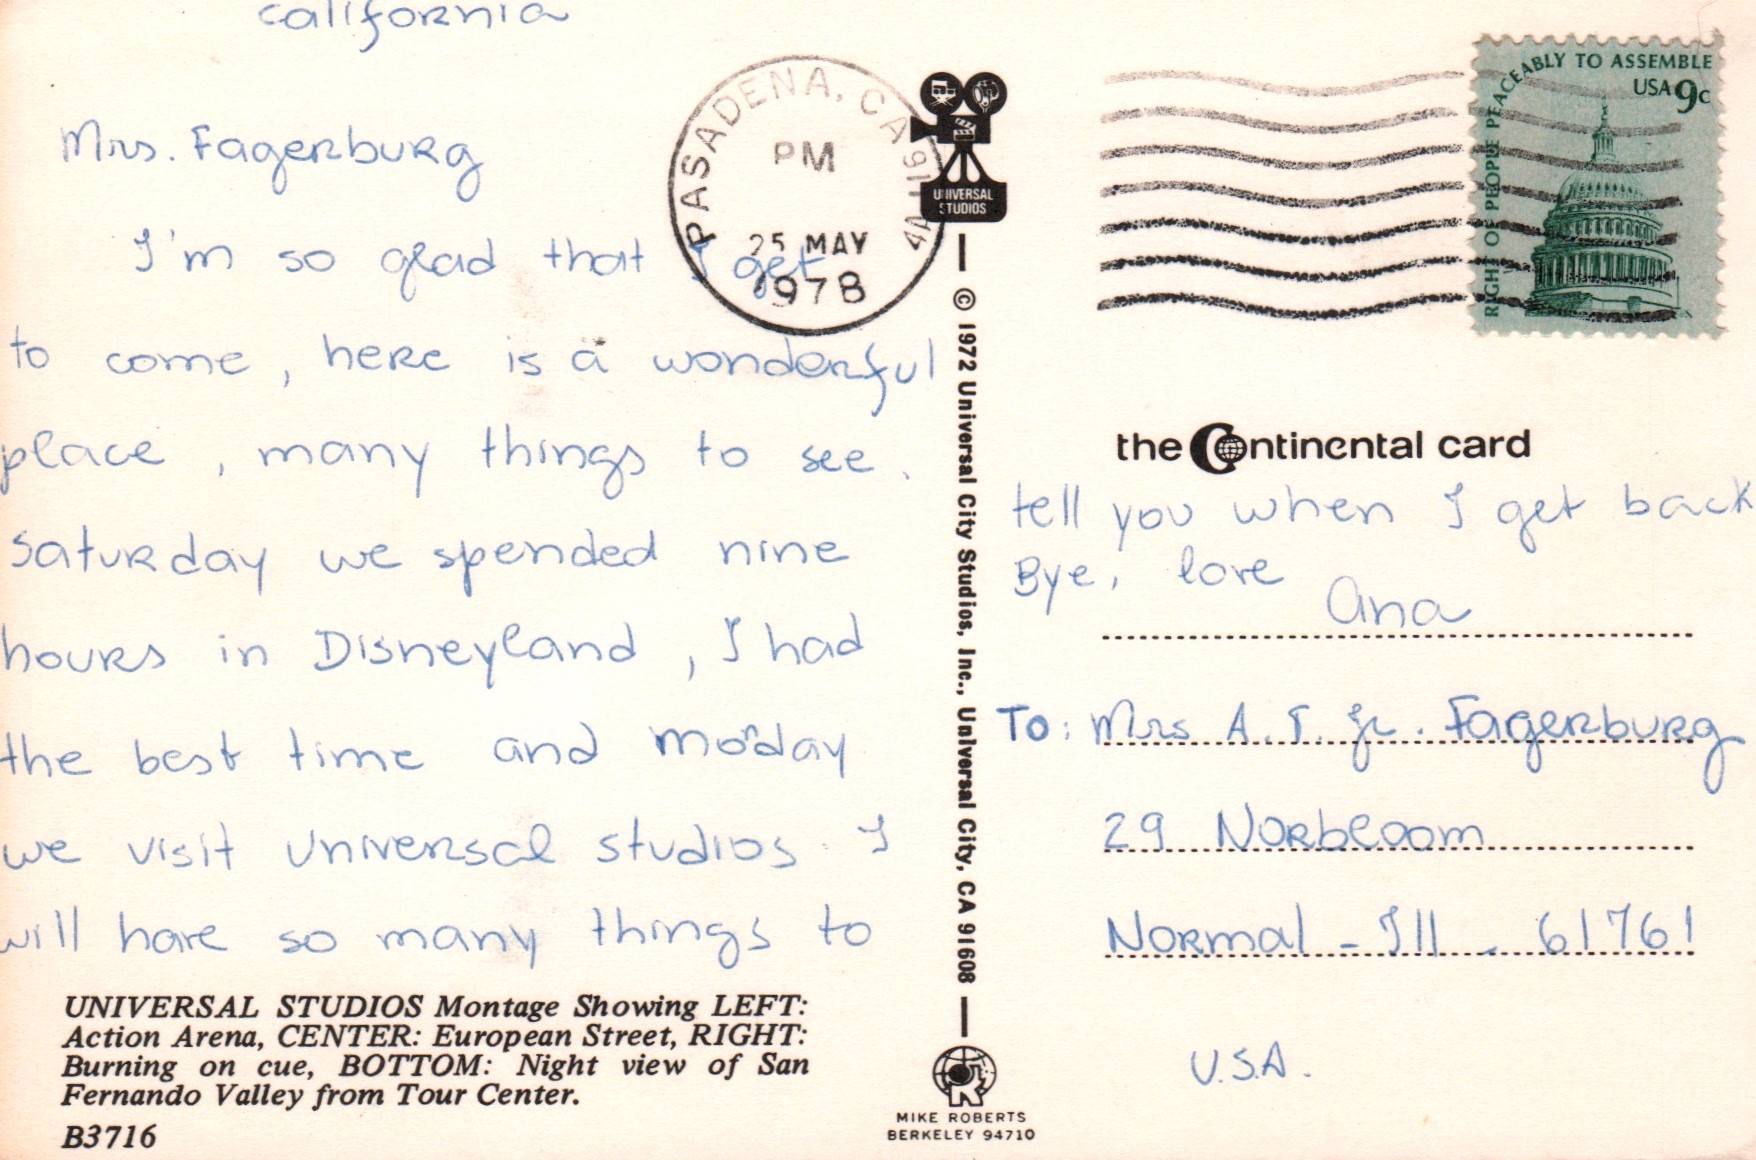 California
Mrs. Fagerburg
I'm so glad that I get
to come, here is a wonderful
place, many things to see.
Saturday we spended nine
hours in Disneyland, I had
the best time and monday
we visit Universal studios. I
will have so many things to
tell you when I get back
Bye, love
Ana
UNIVERSAL STUDIOS Montage Showing LEFT:
Action Arena, CENTER: European Street, RIGHT:
Burning on cue, BOTTOM: Night view of San
Fernando Valley from Tour Center.
B3716
PASADENA, CA 911
PM
25 MAY
1978
UNIVERSAL
STUDIOS
© 1972 Universal City Studios, Inc., Universal City, CA 91608
MIKE ROBERTS
BERKELEY 94710
RIGHT OF PEOPLE PEACEABLY TO ASSEMBLE
USA 9c
the Continental card
To: Mrs A. T. Jr. Fagerburg
29 Norbloom
Normal - Ill. 61761
U.S.A.